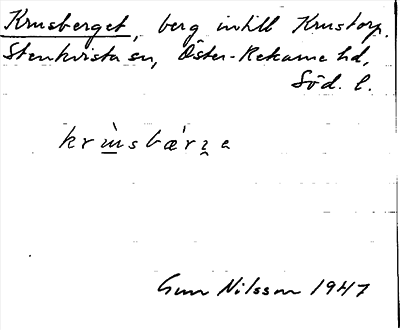 Krusberget, berg intill Krustorp.
Stenkvista sn, Öster-Rekarne hd,
Söd. l.
krùsbǽrɜ̯e
Gun Nilsson 1947